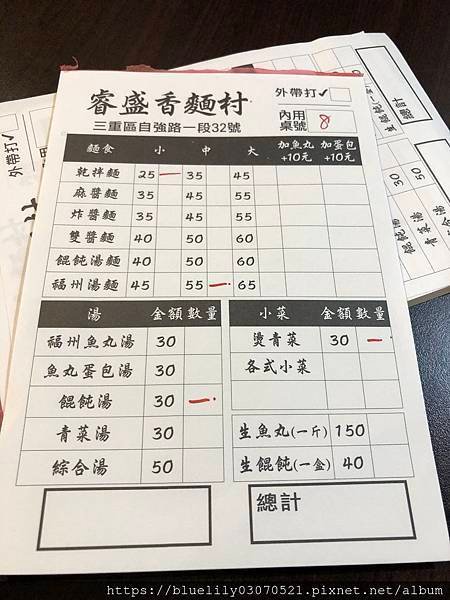 睿盛香麵村
外帶打✓
三重區自強路一段32號
內用桌號 8
麵食 小 中 大 加魚丸+10元 加蛋包+10元
乾拌麵 25 一 35 45
麻醬麵 35 45 55
炸醬麵 35 45 55
雙醬麵 40 50 60
餛飩湯麵 40 50 60
福州湯麵 45 55 一 65
湯 金額 數量
福州魚丸湯 30
魚丸蛋包湯 30
餛飩湯 30 一
青菜湯 30
綜合湯 50
小菜 金額 數量
燙青菜 30 一
各式小菜
生魚丸(一斤) 150
生餛飩(一盒) 40
總計
外帶打✓
總計
餛飩湯 30
青菜湯 50
https://bluelily03070521.pixnet.net/album